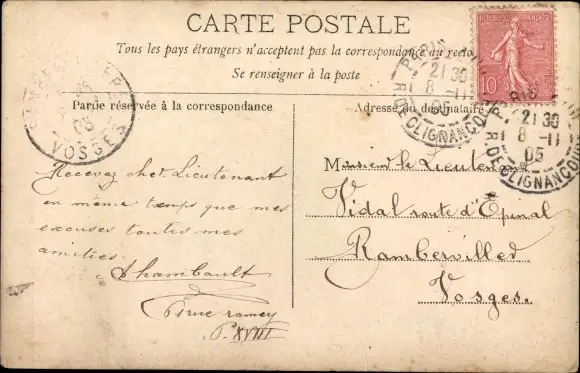 CARTE POSTALE
Tous les pays étrangers n'acceptent pas la correspondance au recto
Se renseigner à la poste
RÉPUBLIQUE FRANÇAISE
10c
PARIS
21 30
8 -11
05
R. DE CLIGNANCOURT
PARIS
21 30
8 -11
05
R. DE CLIGNANCOURT
05
VOSGES
Partie réservée à la correspondance
Recevez cher Lieutenant
en même temps que mes
excuses toutes mes
amitiés.
rue ramey
P. XVIII
Adresse du destinataire
Monsieur le Lieutenant
Vidal route d'Epinal
Rambervilled
Vosges.